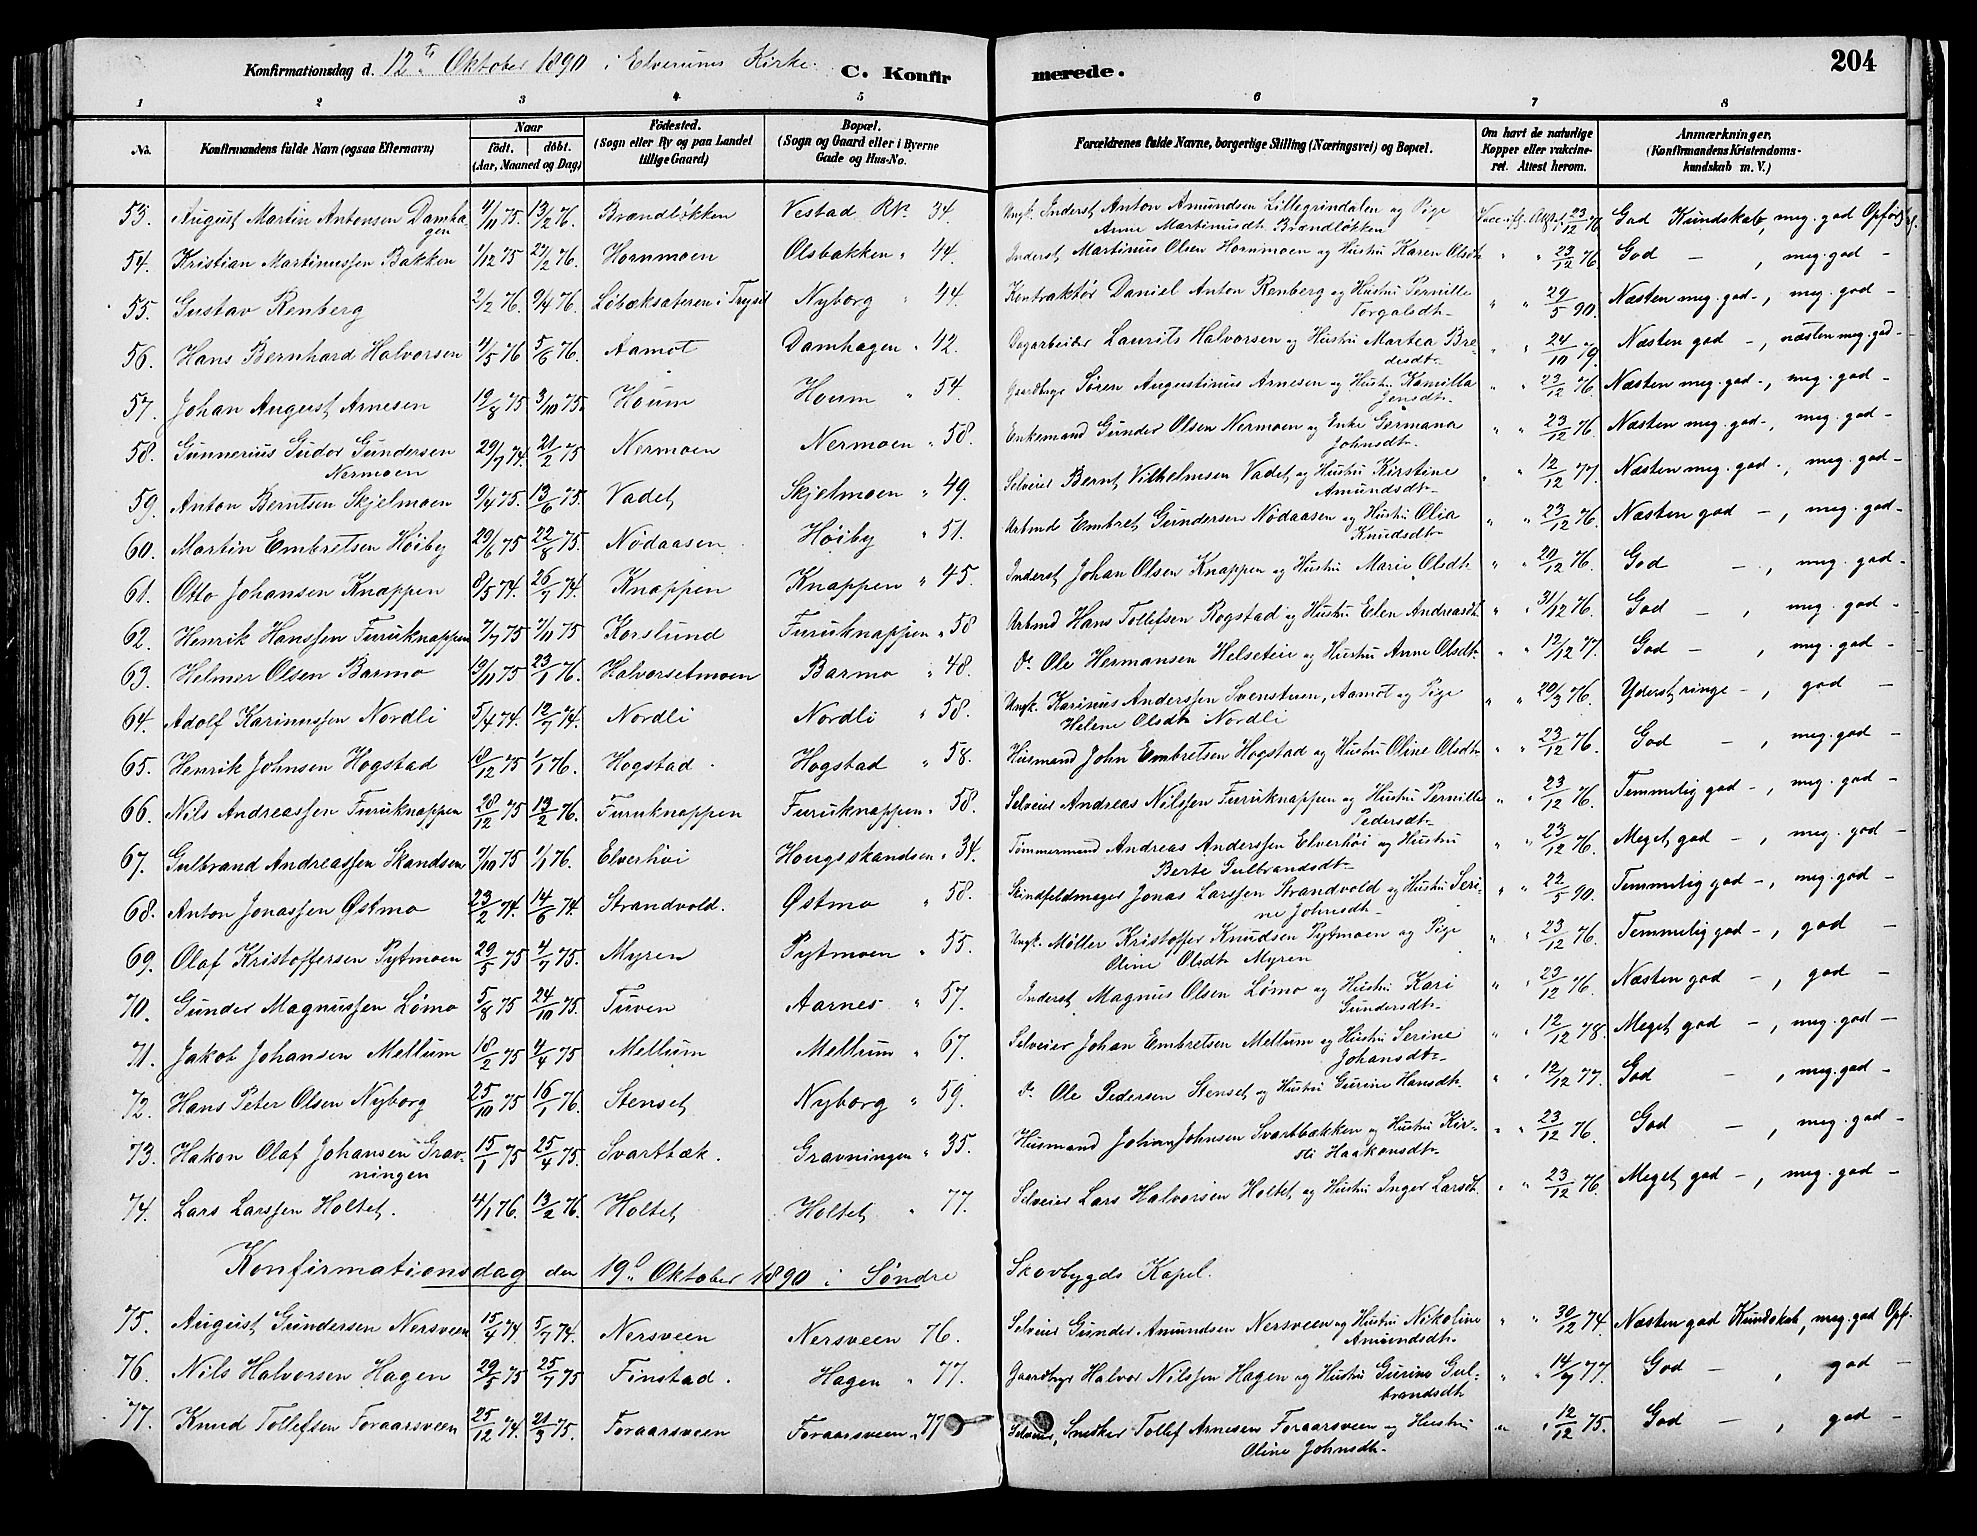 Konfirmationsdag d. 12te Oktober 1890 i Elverums Kirke. C. Konfirmerede. 204
1 2 3 4 5 6 7 8
No. Konfirmandens fulde Navn (ogsaa Efternavn) Naar født. døbt. (Aar, Maaned og Dag) Fødested. (Sogn eller By og paa Landet tillige Gaard) Bopæl. (Sogn og Gaard eller i Byerne Gade og Hus-No. Forældrenes fulde Navne, borgerlige Stilling (Næringsvei) og Bopæl. Om havt de naturlige Kopper eller vakcineret. Attest herom. Anmærkninger. (Konfirmandens Kristendomskundskab m. V.)
53. August Martin Antonsen Damhagen 4/11 75 13/2 76. Brændløkken Vestad RK. 34. Ungk. Inderst Anton Amundsen Lillegrindalen og Pige Anne Martinusdt. Brændløkken 23/12 76 God Kundskab, meg. god Opførsel.
54. Kristian Martinussen Bakken 1/12 75 27/2 76. Hornmoen Olsbakken " 44. Inderst Martinus Olsen Hornmoen og Hustru Karen Olsdt. " " 23/12 76. God - , meg. god -
55. Gustav Renberg 2/2 76 9/4 76. Løbæksæteren i Trysil Nyborg " 44. Kontraktør Daniel Anton Renberg og Hustru Pernille Torgalsdt. " " 29/5 90. Næsten meg. god -, meg. god -
56. Hans Bernhard Halvorsen 1/5 76 5/6 76. Aamot Damhagen " 42. Dagarbeider Laurits Halvorsen og Hustru Martea Bredesdt. " " 24/10 79. Næsten god -, næsten meg. god -
57. Johan August Arnesen 19/8 75 3/10 75. Houm Houm " 54. Gaardbrg. Søren Augustinus Arnesen og Hustru Kamilla Jensdt. " " 23/12 76 Næsten meg. god -, meg. god -
58. Gunnerius Gudor Gundersen Nermoen 29/7 74. 21/2 75 Nermoen Nermoen " 58. Enkemand Gunder Olsen Nermoen og Enke Germana Johnsdt. " " 23/12 76. Næsten meg. god -, meg. god -
59. Anton Berntsen Skjelmoen 9/4 75. 13/6 75. Vadet Skjelmoen " 49. Selveier Bernt Vilhelmsen Vadet og Hustru Kirstine Amundsdt. " " 12/12 77. Næsten meg. god -, meg. god -
60. Martin Embretsen Høiby 29/6 75 22/8 75. Nødaasen Høiby " 51. Arbmd Embret Gundersen Nødaasen og Hustru Olia Knudsdt. " " 23/12 76. Næsten god -, meg. god -
61. Otto Johansen Knappen 8/5 74. 26/7 74. Knappen Knappen " 45. Inderst Johan Olsen Knappen og Hustru Marie Olsdt. " " 20/12 76. God - , meg. god -
62. Henrik Hanssen Furuknappen 7/7 75 7/11 75 Korslund Furuknappen " 58 Arbmd Hans Tollefsen Rogstad og Hustru Elen Andreasdt. " " 31/12 76. God - , meg. god -
63. Helmer Olsen Barmo 19/11 75 23/1 76. Halvorsetmoen Barmo " 48. do. Ole Hermansen Helseteie og Hustru Anne Olsdt. " " 12/12 77. God - , meg. god -
64. Adolf Karinussen Nordli 5/4 74. 12/7 74. Nordli Nordli " 58. Ungk. Karinus Anderssen Svenstuen, Aamot og Pige Helene Olsdt. Nordli " " 20/3 76. Yderst ringe -, god -
65. Henrik Johnsen Hogstad 10/12 75 1/1 76. Hogstad Hogstad " 58. Husmand John Embretsen Hogstad og Hustru Oline Olsdt. " " 23/12 76. God - , meg. god -
66. Nils Andreassen Furuknappen 28/12 75 13/2 76. Furuknappen Furuknappen " 58. Selveier Andreas Nilssen Furuknappen og Hustru Pernille Pedersdt. " " 23/12 76. Temmelig god -, meg. god -
67. Gulbrand Andreassen Skandsen 7/10 75 1/1 76. Elverhøi Hougsskandsen " 34. Tømmermand Andreas Anderssen Elverhøi og Hustru Berte Gulbrandsdt. " " 23/12 76. Meget god -, meg. god -
68. Anton Jonassen Østmo 23/2 74. 14/6 74. Strandvold. Østmo " 58. Skindfeldmager Jonas Larssen Strandvold og Hustru Serine Johnsdt. " " 22/5 90. Temmelig god -, meg. god -
69. Olaf Kristoffersen Pytmoen 29/5 75 4/7 75. Myren Pytmoen " 55. Ungk. Møller Kristoffer Knudsen Pytmoen og Pige Oline Olsdt. Myren " " 23/12 76. Temmelig god -, god -
70. Gunder Magnussen Lømo 5/8 75 24/10 75. Tuven Aarnes " 57. Inderst Magnus Olsen Lømo og Hustru Kari Gundersdt. " " 23/12 76. Næsten god -, god -
71. Jakob Johansen Mellum 18/2 75 4/4 75. Mellum Mellum " 67. Selveier Johan Embretsen Mellum og Hustru Serine Johansdt. " " 12/12 78. Meget god -, meg. god -
72. Hans Peter Olsen Nyborg 25/10 75 16/1 76. Stenset Nyborg " 59. do. Ole Pedersen Stenset og Hustru Gurine Hansdt. " " 12/12 77. God - , meg. god -
73. Hakon Olaf Johansen Gravningen 15/1 75 25/4 75. Svartbæk. Gravningen " 35. Husmand Johan Johnsen Svartbækken og Hustru Kirsti Haakensdt. " " 23/12 76. God - , meg. god -
74. Lars Larssen Holtet. 4/1 76. 13/2 76. Holtet Holtet " 77. Selveier Lars Halvorsen Holtet og Hustru Inger Larsdt. " " 23/12 76 Meget god -, meg. god -
Konfirmationsdag den 19de Oktober 1890 i Søndre Skovbygds Kapel.
75. August Gundersen Nersveen 15/4 74 5/7 74. Nersveen Nersveen 76. Selveier Gunder Amundsen Nersveen og Hustru Nikoline Amundsdt. " " 30/12 74. Næsten god Kundskab, meg. god Opf.
76. Nils Halvorsen Hagen 29/5 75 25/7 75 Finstad. Hagen " 77. Gaardbrg. Halvor Nilssen Hagen og Hustru Gurine Gulbrandsdt. " " 14/9 77. God - , god -
77. Knud Tollefsen Foraarsveen 25/12 74. 21/3 75. Foraarsveen Foraarsveen " 77 Selveier, Snedker Tollef Arnesen Foraarsveen og Hustru Oline Johnsdt. " " 12/12 75. God - , god -